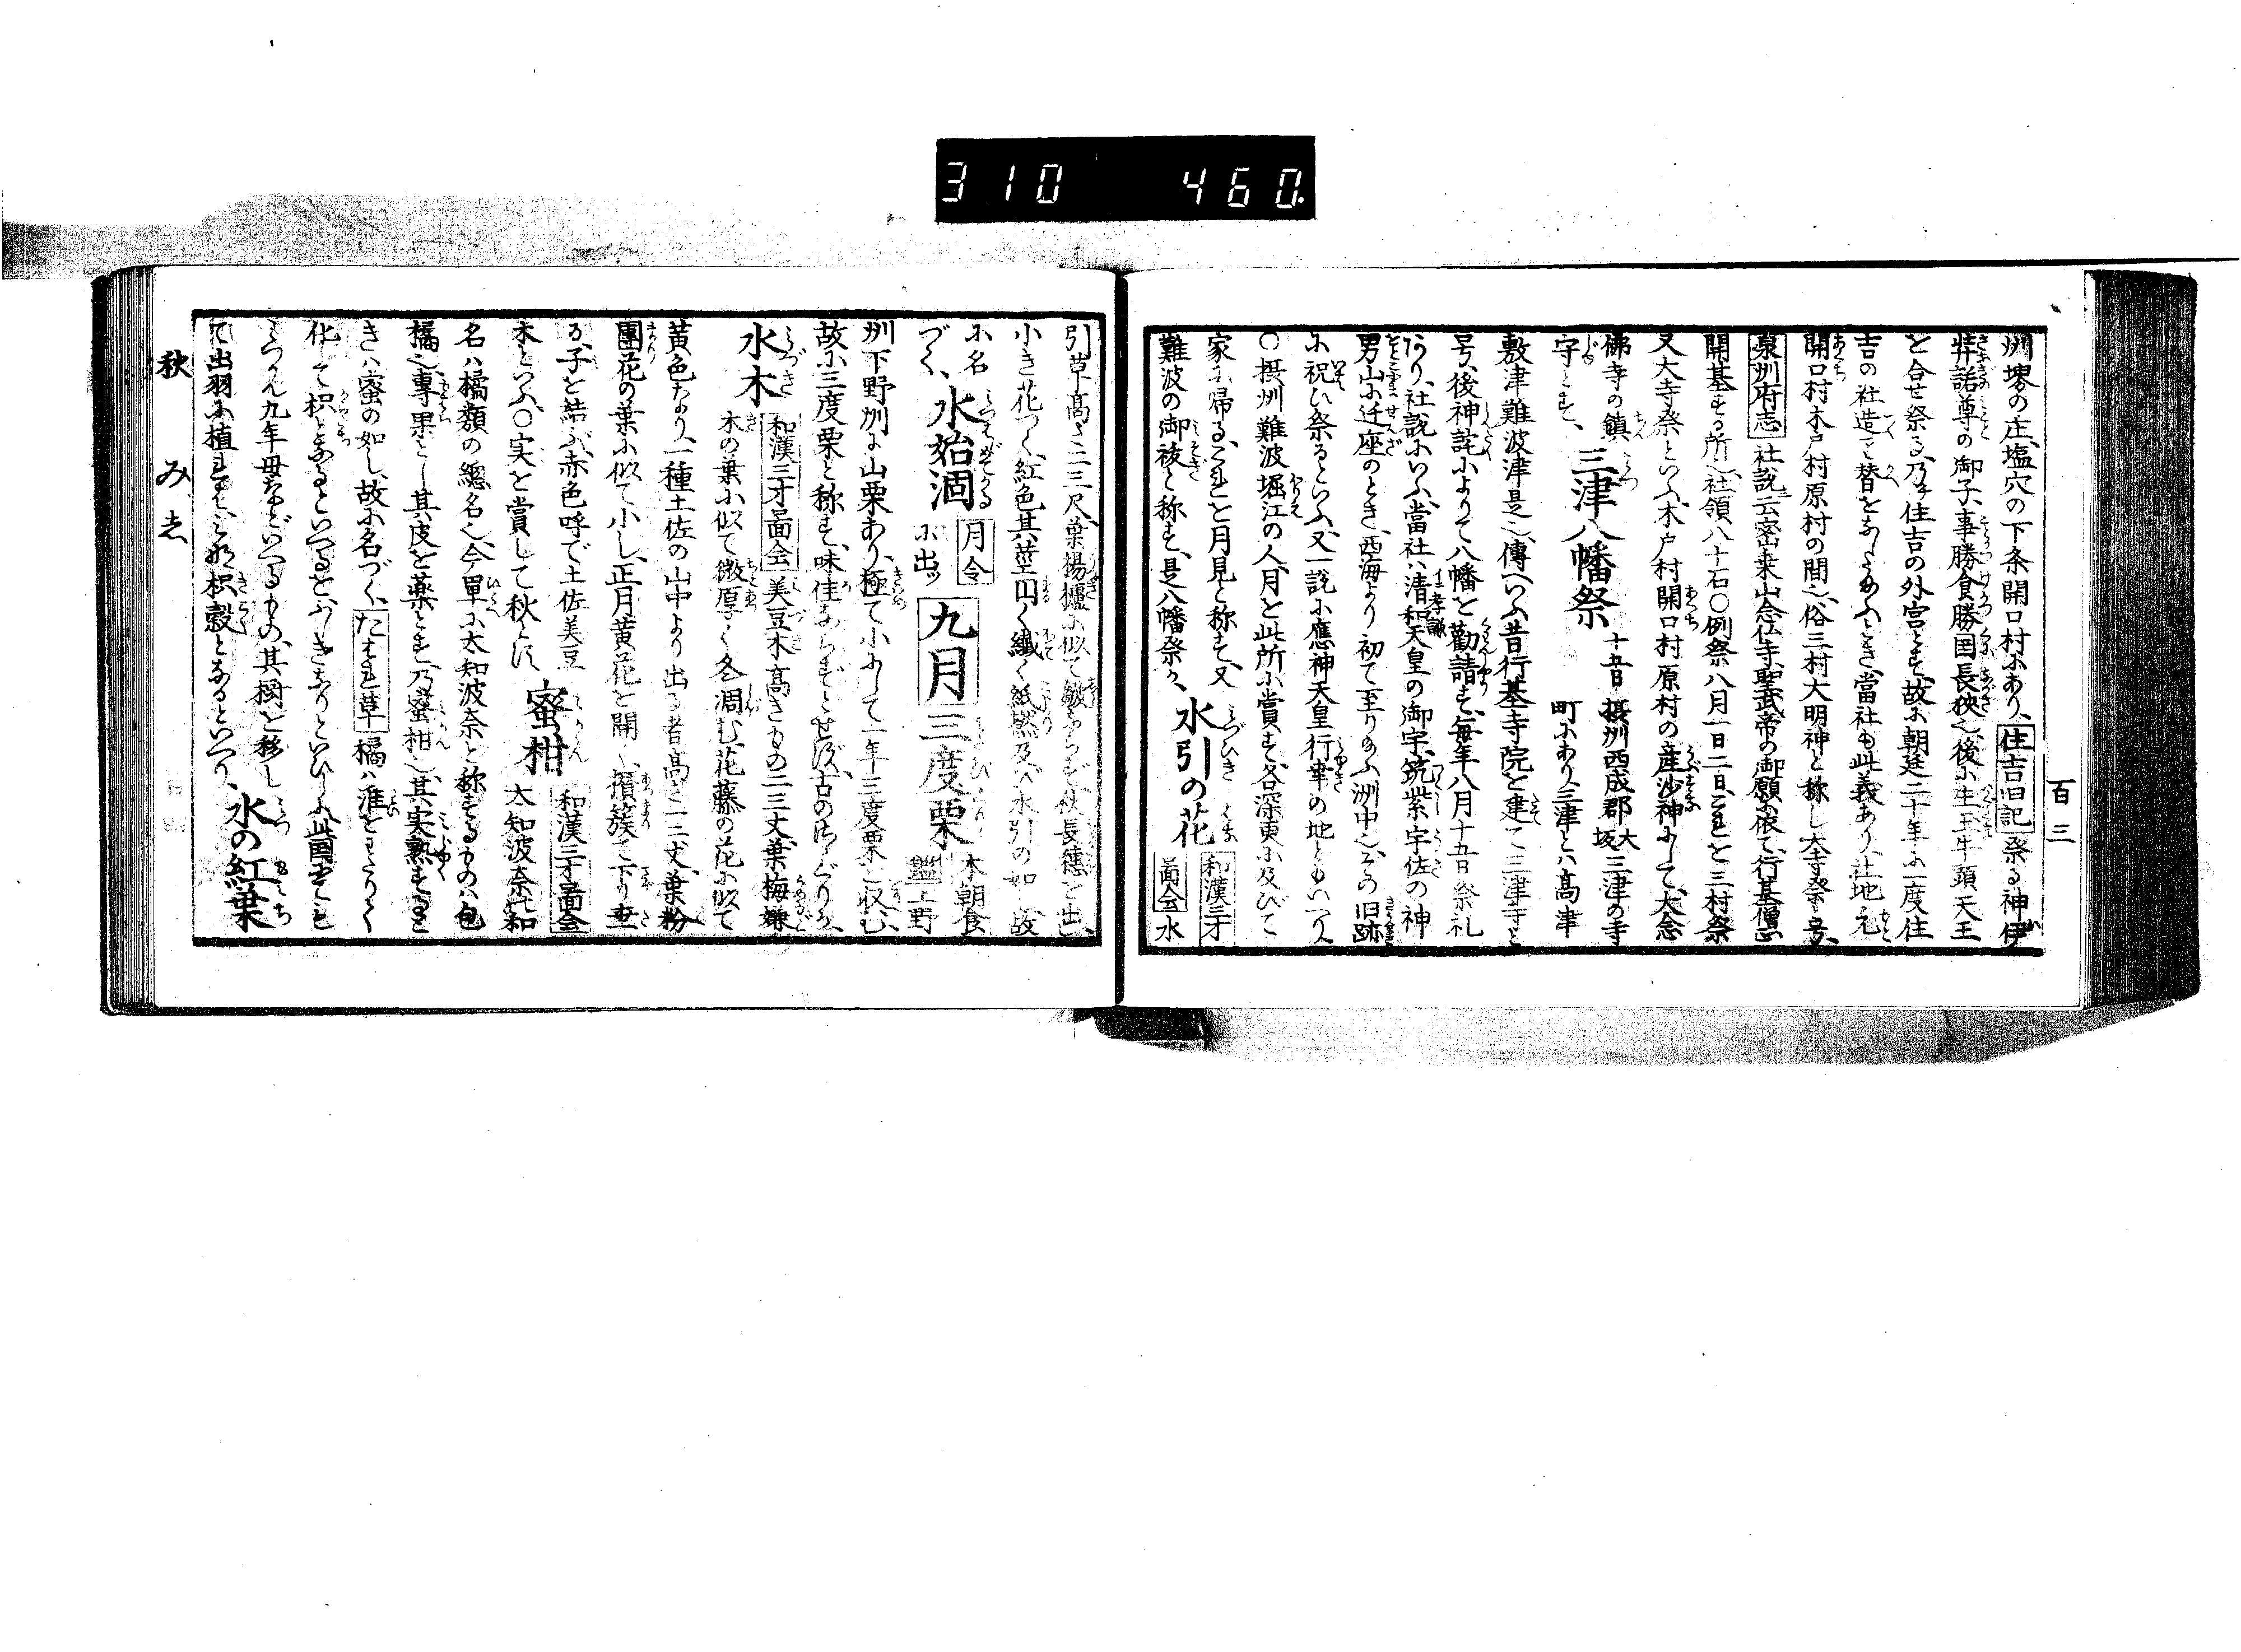 310 460
百三
洲堺の庄、塩穴の下条開口村にあり、住吉旧記祭る神伊
弉諾尊の御子、事勝食勝国長狭也、後に生玉牛頭天王
と合せ祭る、乃ち住吉の外宮とす、故に朝廷二十年に一度住
吉の社造り替をなしたまふとき、當社も此義あり、社地元
開口村木戸村原村の間也、俗三村大明神と称し大寺祭と号、
泉州府志 社説云密乗山念仏寺、聖武帝の御願に依て、行基僧正
開基する所也、社領八十石○例祭八月一日二日、これを三村祭
又大寺祭といふ、木戸村開口村原村の産沙神にして、大念
佛寺の鎮守とす、
三津八幡祭 十五日 摂州西成郡大坂三津の寺町にあり、三津とは高津
敷津難波津是也、傳へいふ昔行基寺院を建て三津寺と
号、後神託によりて八幡を勧請す、毎年八月十五日祭礼
あり、社説にいふ、當社は清和天皇の御宇、筑紫宇佐の神
男山に迁座のとき、西海より初て至り給ふ洲中也、その旧跡
に祝ひ祭るといふ、又一説に應神天皇行幸の地ともいへり、
○摂州難波堀江の人、月を此所に賞す、各深更に及びて
家に帰る、これを月見と称す、又
難波の御祓と称す、是八幡祭也、
水引の花 和漢三才啚会 水
引草高さ二三尺、葉楊櫨に似て皺あらず、秋長穂を出、
小き花つく、紅色其莖円く纎く紙撚及び水引の如し、故
に名づく、
水始涸 月令に出ッ
九月
三度栗 本朝食鑑 上野
州下野州に山栗あり、極て小にして一年三度栗を収む、
故に三度栗と称す、味佳ならずとせず、古のささぐりか、
水木 和漢三才啚会 美豆木高きもの二三丈、葉梅嫌
木の葉に似て微厚く冬凋む、花藤の花に似て
黄色なり、一種土佐の山中より出る者高さ二三丈、葉粉
團花の葉に似て小し、正月黄花を開く、攅簇て下り垂
る、子を結ぶ、赤色呼で土佐美豆
木といふ、○実を賞して秋とす、
蜜柑 和漢三才啚会 太知波奈、和
名は橘類の總名也、今単に太知波奈と称するものは包
橘也、專果とし其皮を薬とす、乃蜜柑也、其実熟するとき
は蜜の如し、故に名づく、たはれ草 橘は淮をわたりて
化して枳となるといへるを、ふしぎなりといひしに、此国にても
みつかん九年母などいへるもの、其樹を移し
て出羽に植れば、みな枳殻となるといへり、
水の紅葉
秋 みし